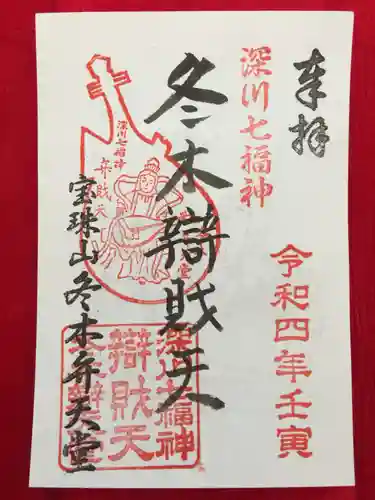 奉拝
令和四年壬寅
深川七福神
冬木辯財天
深川七福神
弁財天
宝珠山冬木弁天堂
深川七福神
辯財天